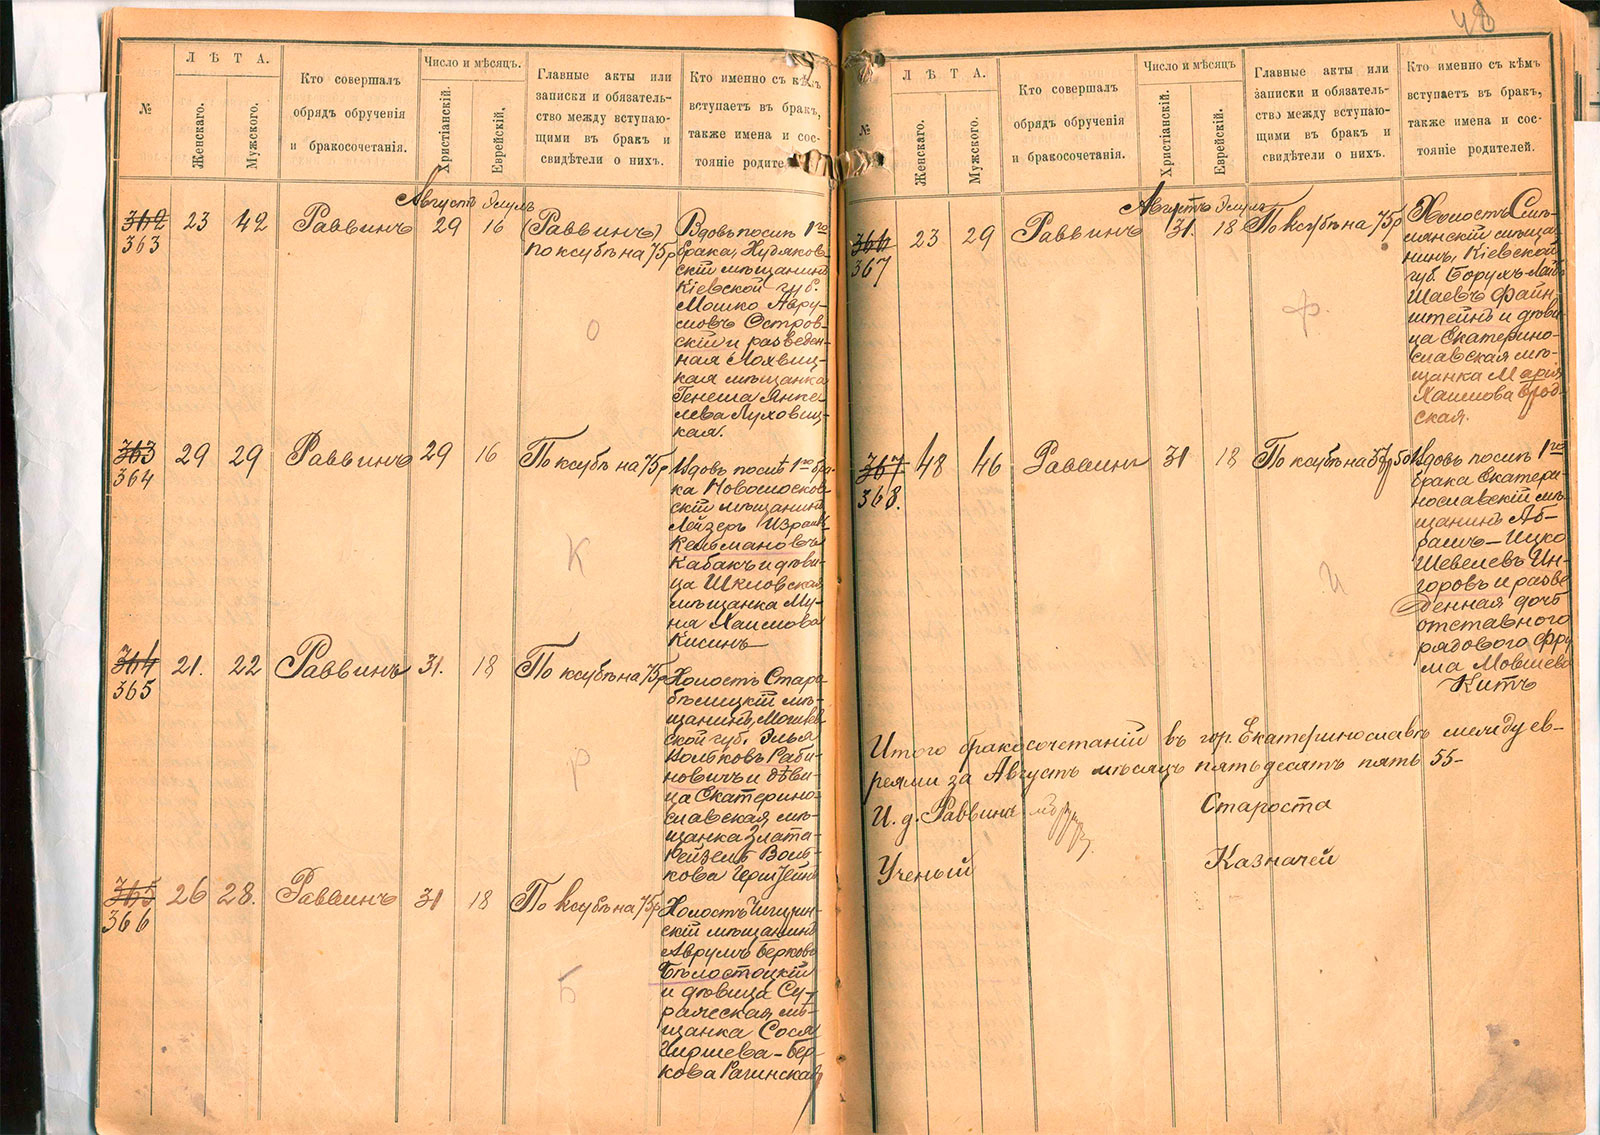 №
Л Ѣ Т А.
Женскаго.
Мужского.
Кто совершалъ
обрядъ обрученія
и бракосочетанія.
Число и мѣсяцъ.
Христіанскій.
Еврейскій.
Главные акты или
записки и обязатель-
ство между вступаю-
щими въ бракъ и
свидѣтели о нихъ.
Кто именно съ кѣмъ
вступаетъ въ бракъ,
также имена и сос-
тояніе родите
Августъ Элулъ
362
363
23 42 Раввинъ 29 16
(Раввинъ)
По ксубѣ на 75 р
Вдовъ послѣ 1го
брака,
скій мѣщанинъ
Кіевской губ.
Мошко Авру-
мовъ Остров-
скій и разведен-
ная Лохвиц-
кая мѣщанка
Генеша Янке-
лева Луховиц-
кая.
363
364
29 29 Раввинъ 29 16 По ксубѣ на 75 р
Вдовъ послѣ 1го бра-
ка Новомосков-
скій мѣщанинъ
Лейзеръ Израил-
Кельмановъ
Кабакъ и дѣви-
ца Шкловская
мѣщанка Му-
ня Хаимова
Кисинъ
364
365
21. 22 Раввинъ 31. 18 По ксубѣ на 75 р
Холостъ Старо-
бѣлицкій мѣ-
щанинъ, Могилев-
ской губ. Элья
Волковъ Раби-
новичъ и дѣви-
ца Екатерино-
славская мѣ-
щанка Злата-
Рейзель Воль-
кова
365
366
26 28. Раввинъ 31 18 По ксубѣ на 75 р
Холостъ Чигирин-
скій мѣщанинъ
Аврумъ Берковъ
Бѣлостоцкій
и дѣвица Су-
ражская мѣ-
щанка Сося
Гиршева-Бер-
кова Рагинская
О
К
Р
Б
48
№
Л Ѣ Т А.
Женскаго.
Мужского.
Кто совершалъ
обрядъ обрученія
и бракосочетанія.
Число и мѣсяцъ.
Христіанскій.
Еврейскій.
Главные акты или
записки и обязатель-
ство между вступаю-
щими въ бракъ и
свидѣтели о нихъ.
Кто именно съ кѣмъ
вступаетъ въ бракъ,
также имена и сос-
тояніе родителей.
Августъ Элулъ
366
367
23 29 Раввинъ 31. 18 По ксубѣ на 75 р
Холостъ Смѣ-
лянскій мѣща-
нинъ, Кіевской
губ. Борухъ-Лейбъ
Шаевъ Файн-
штейнъ и дѣви-
ца Екатерино-
славская мѣ-
щанка Марія
Хаимова Брод-
ская.
367
368.
48 46 Раввинъ 31 18 По ксубѣ на 37 р 50
Вдовъ послѣ 1го
брака Екатери-
нославскій мѣ-
щанинъ Аб-
рамъ-Ицко
Шевелевъ Ин-
горовъ и разве-
денная дочь
отставного
рядового Фру-
ма Мовшева
Китъ
Ф
И
Итого бракосочетаній въ гор. Екатеринославѣ между ев-
реями за Августъ мѣсяцъ пятьдесятъ пять 55-
И. д. Раввинъ
Староста
Ученый
Казначей